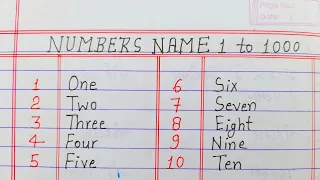 NUMBERS NAME 1 to 1000
1 One 6 Six
2 Two 7 Seven
3 Three 8 Eight
4 Four 9 Nine
5 Five 10 Ten